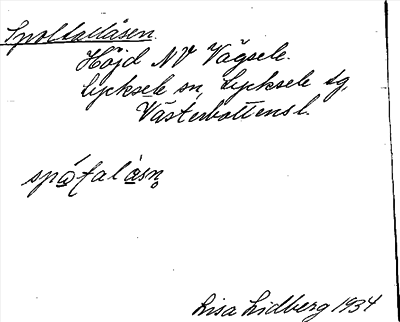 Spoltallåsen.
Höjd NV Vägsele.
Lycksele sn, Lycksele tg,
Västerbottens l.
Lisa Lidberg 1934